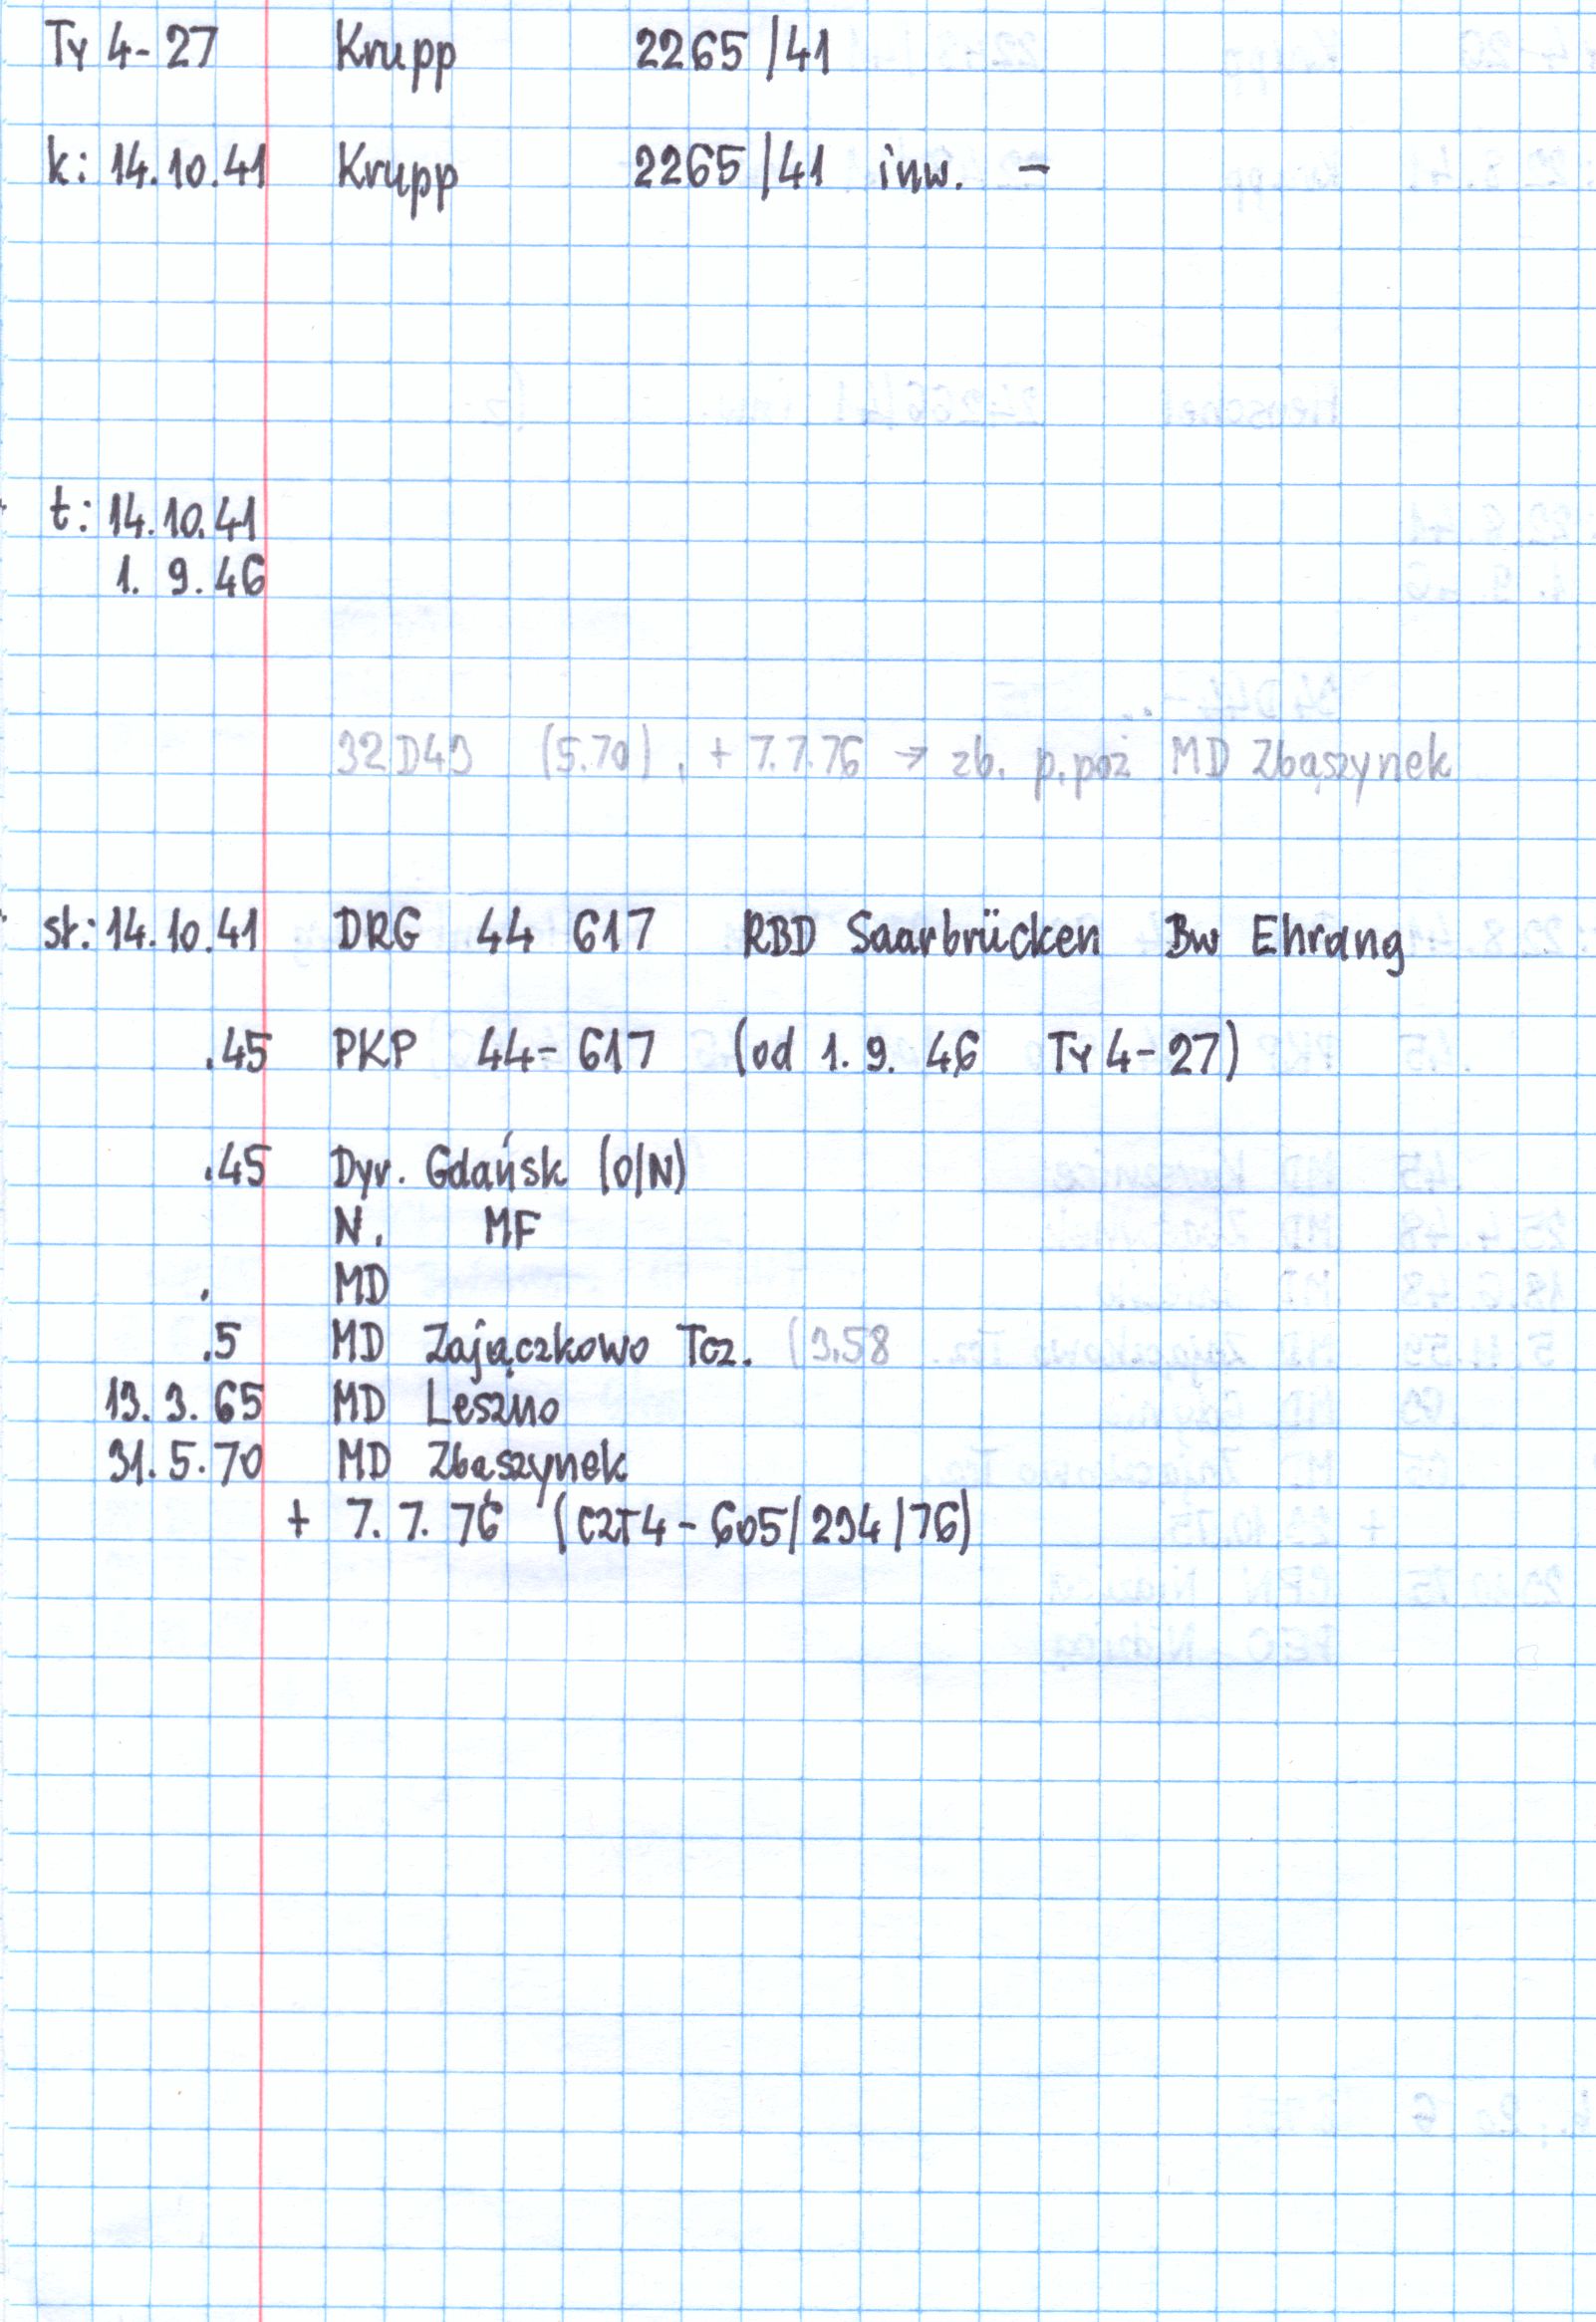 Ty 4-27 Krupp 2265/41
k: 14.10.41 Krupp 2265/41 inw. –
t: 14.10.41
1. 9. 46
32D43 (5.70), + 7.7.76 → zb. p.poż MD Zbąszynek
st: 14.10.41 DRG 44 617 RBD Saarbrücken Bw Ehrang
.45 PKP 44-617 (od 1. 9. 46 Ty 4-27)
.45 Dyr. Gdańsk (O/N)
N. MF
. MD
.5 MD Zajączkowo Tcz. (3.58
13. 3. 65 MD Leszno
31. 5. 70 MD Zbąszynek
+ 7. 7. 76 (CZT4-605/294/76)